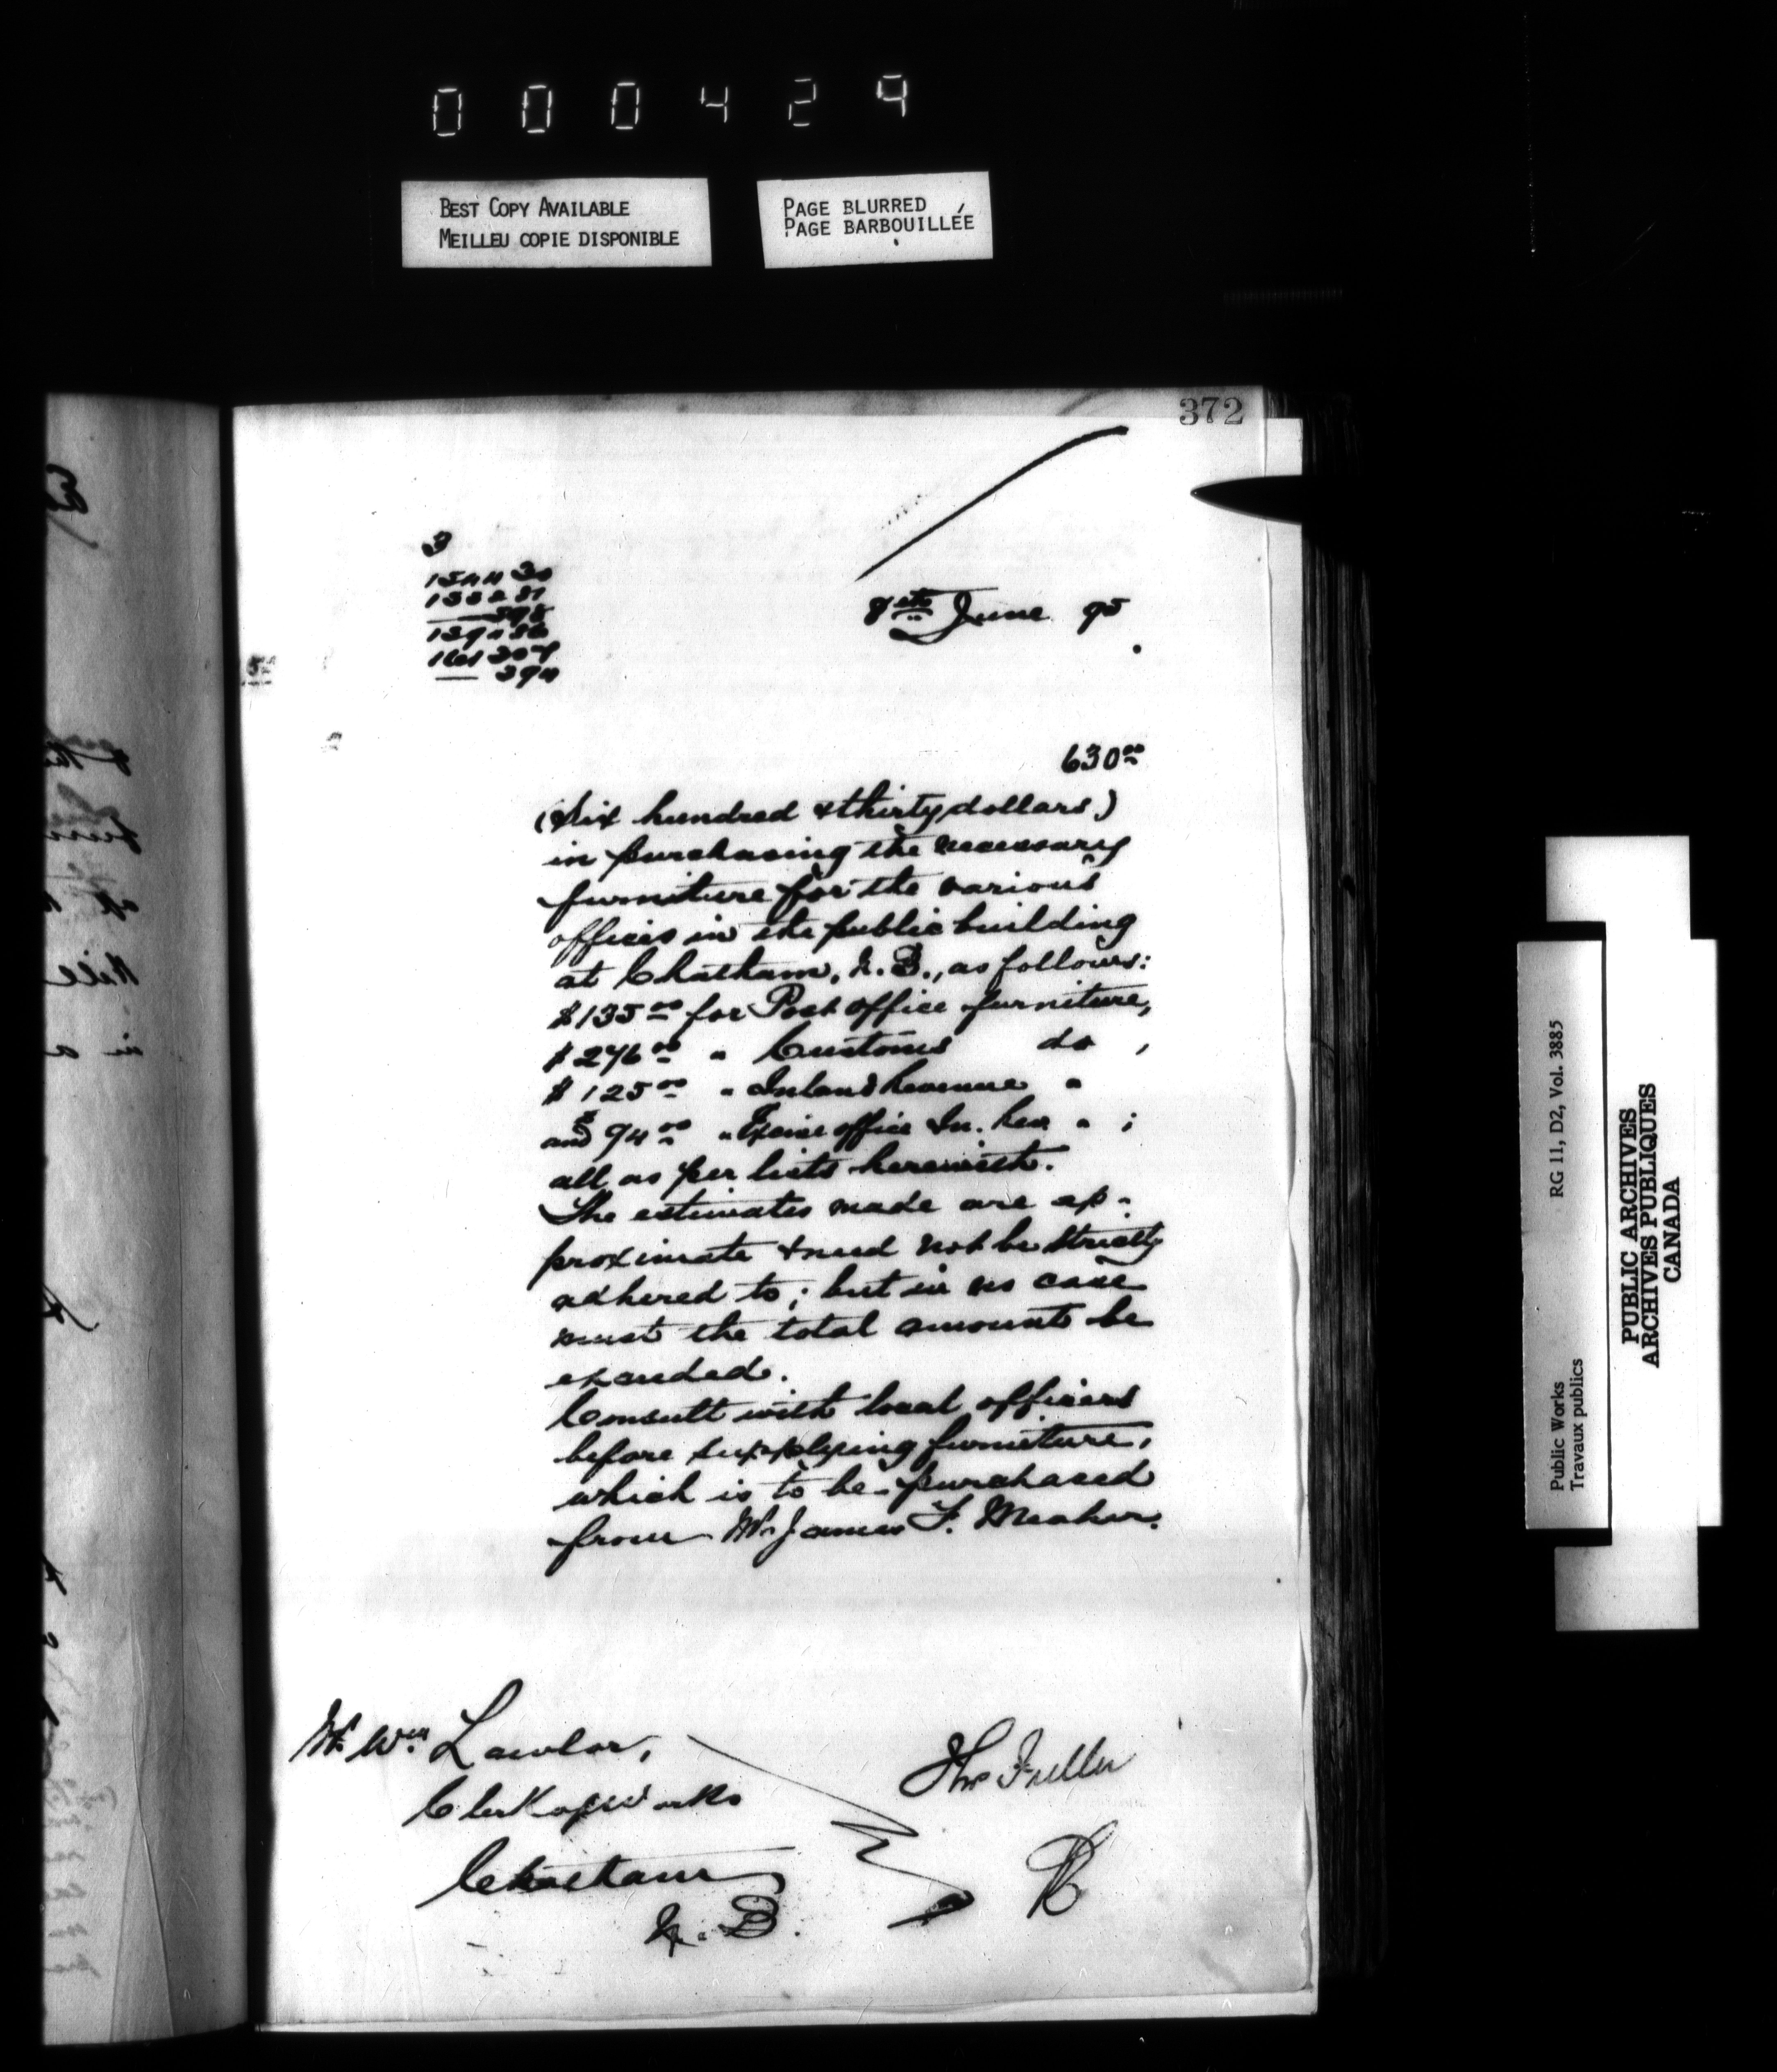 000429
BEST COPY AVAILABLE
MEILLEU COPIE DISPONIBLE
PAGE BLURRED
PAGE BARBOUILLÉE
372
3
8th June 95
630 00
(Six hundred & thirty dollars)
in purchasing the necessary
furniture for the various
offices in the public building
at Chatham, N.B., as follows:
$135 00 for Post office furniture,
$276 00 " Customs do ,
$125 00 " Inland Revenue "
and $94 00 " Excise office In. Rev " ;
all as per lists herewith.
The estimates made are ap-
proximate & need not be strictly
adhered to; but in no case
must the total amount be
exceeded.
Consult with local officers
before supplying furniture,
which is to be purchased
from Mr James F. Meaher.
Mr. Wm. Lawlor,
Clerk of Works
Chatham
N.B.
Thos Fuller
Public Works
Travaux publics
RG 11, D2, Vol. 3885
PUBLIC ARCHIVES
ARCHIVES PUBLIQUES
CANADA